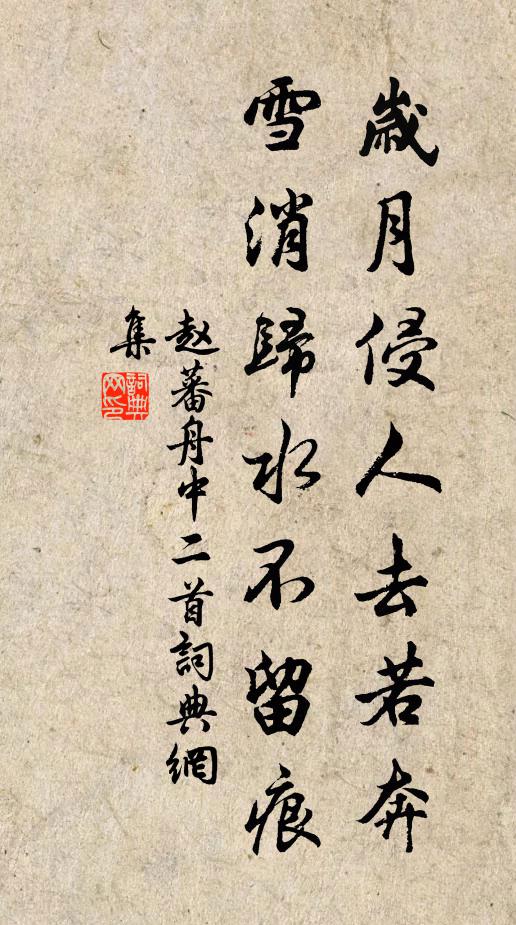 歲月侵人去若奔
雪消歸水不留痕
赵蕃舟中二首詞典網
集
詞典
网印